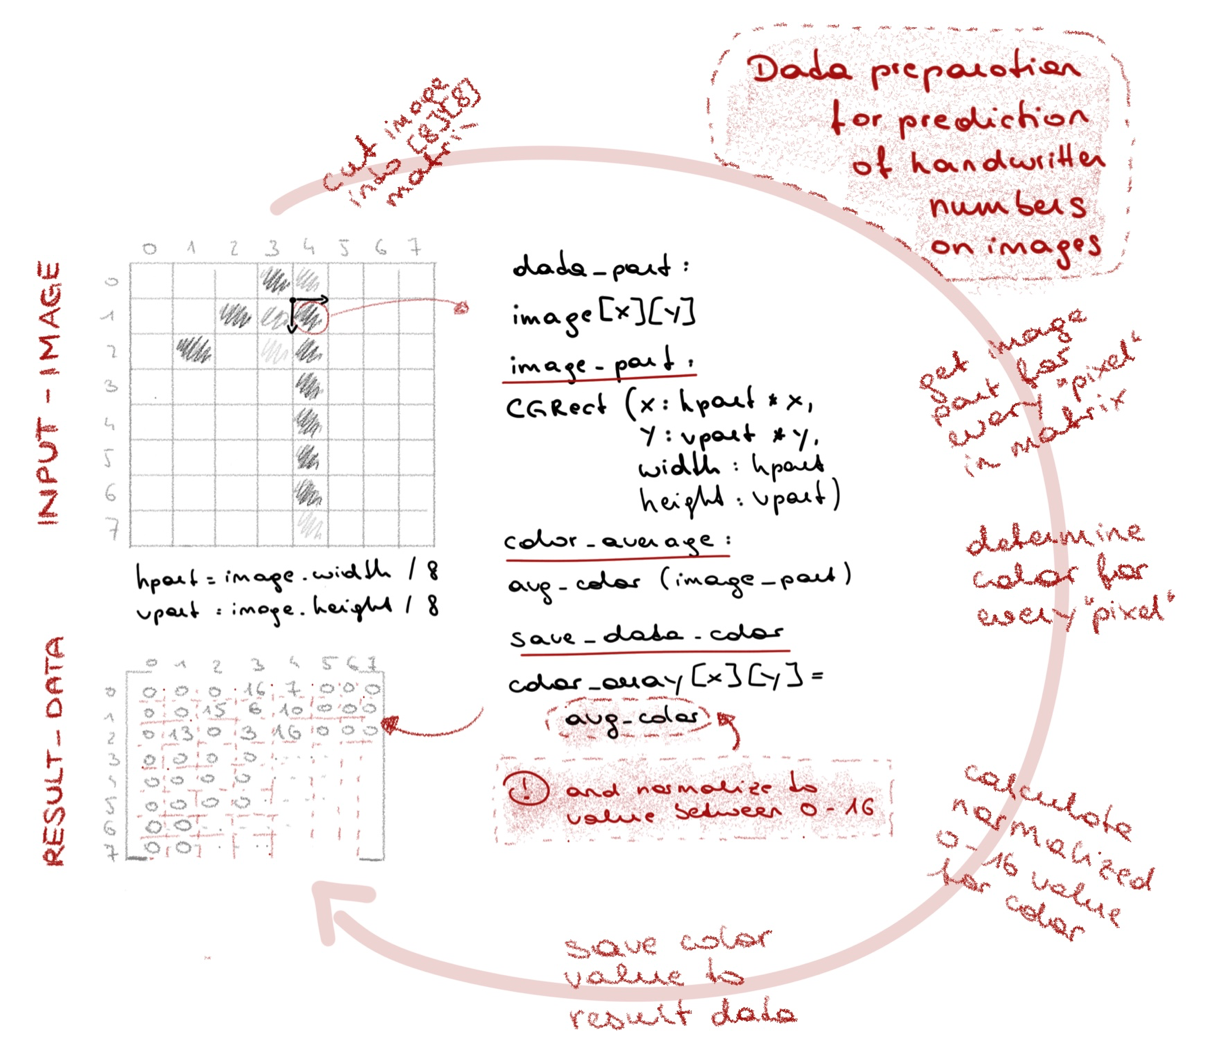 Data preparation
for prediction
of handwritten
numbers
on images
cut image
into [8][8]
matrix
INPUT-IMAGE
0 1 2 3 4 5 6 7
0
1
2
3
4
5
6
7
hpart = image.width / 8
vpart = image.height / 8
data_part:
image[x][y]
image_part:
CGRect (x: hpart * x,
y: vpart * y,
width: hpart
height: vpart)
color_average:
avg_color (image_part)
save_data_color
color_array[x][y] =
avg_color
! and normalize to
value between 0-16
get image
part for
every "pixel"
in matrix
determine
color for
every "pixel"
calculate
normalized
0-16 value
for color
save color
value to
result data
RESULT_DATA
0 1 2 3 4 5 6 7
0 0 0 0 16 7 0 0 0
1 0 0 15 6 10 0 0 0
2 0 13 0 3 16 0 0 0
3 0 0 0 0
4 0 0 0 0
5 0 0 0 0
6 0 0
7 0 0